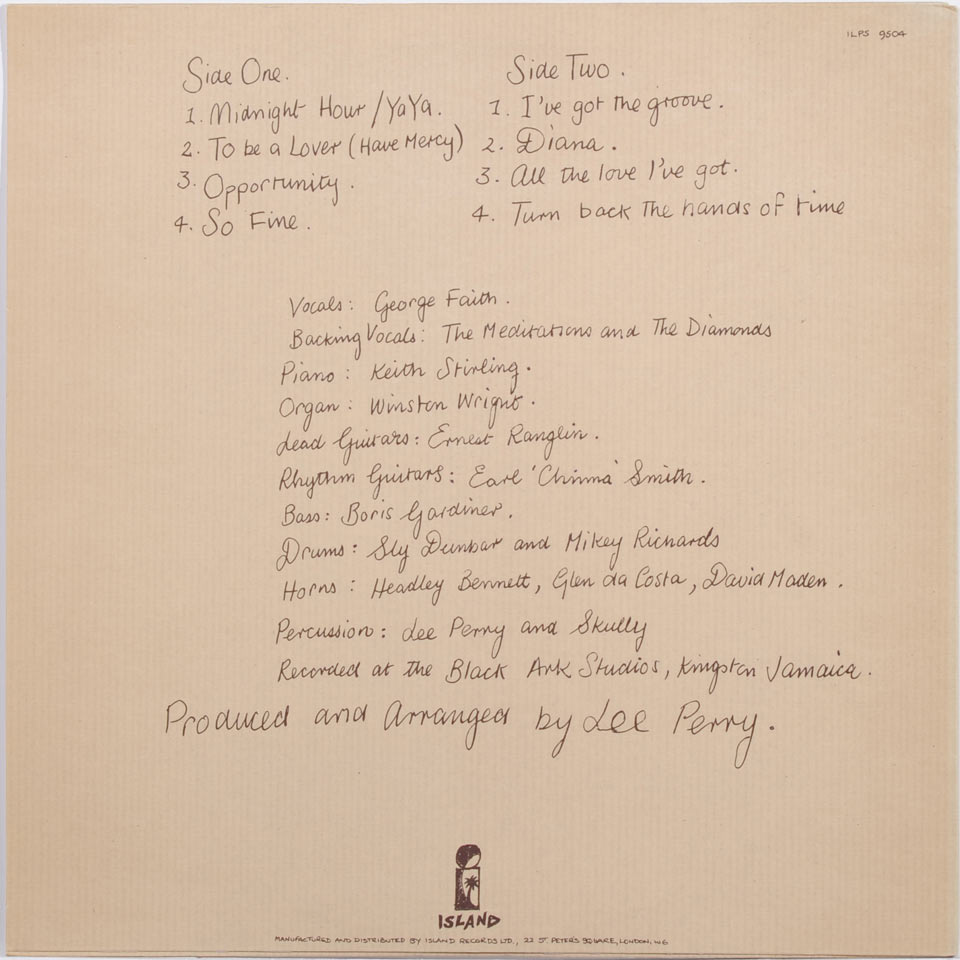 ILPS 9504
Side One.
1. Midnight Hour / YaYa.
2. To be a Lover (Have Mercy)
3. Opportunity.
4. So Fine.
Side Two.
1. I've got the groove.
2. Diana.
3. All the love I've got.
4. Turn back the hands of time
Vocals: George Faith.
Backing Vocals: The Meditations and The Diamonds
Piano: Keith Stirling.
Organ: Winston Wright.
Lead Guitars: Ernest Ranglin.
Rhythm Guitars: Earl 'Chinna' Smith.
Bass: Boris Gardiner.
Drums: Sly Dunbar and Mikey Richards
Horns: Headley Bennett, Glen da Costa, David Maden.
Percussion: Lee Perry and Skully
Recorded at the Black Ark Studios, Kingston Jamaica.
Produced and Arranged by Lee Perry.
ISLAND
MANUFACTURED AND DISTRIBUTED BY ISLAND RECORDS LTD., 22 ST. PETERS SQUARE, LONDON, W6